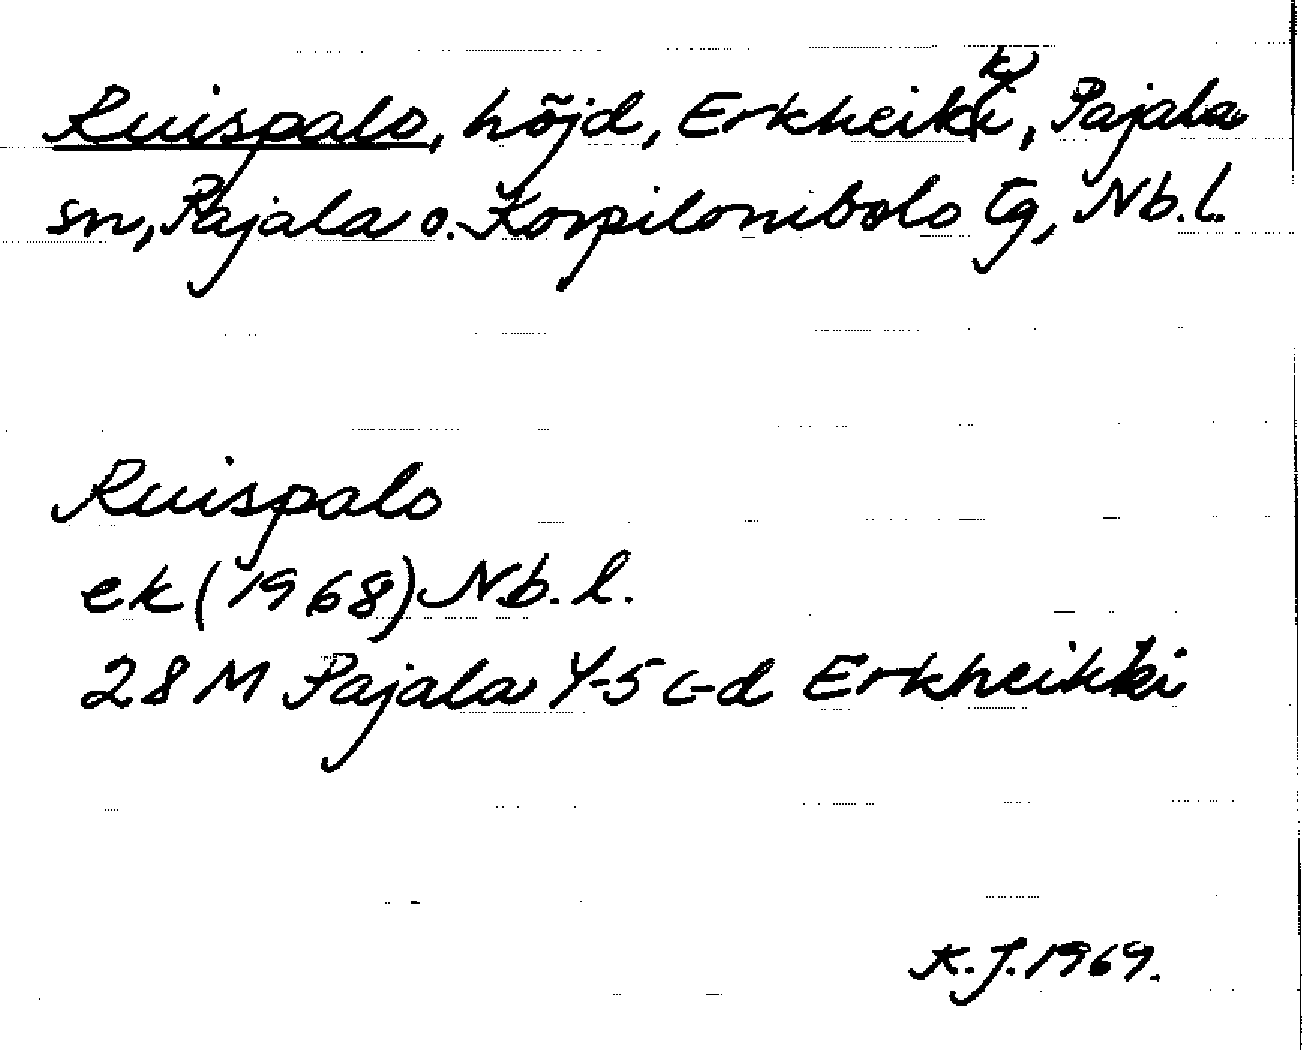 Ruispalo, höjd, Erkheikki, Pajala
sn, Pajala o. Korpilombolo tg, Nb.l.
Ruispalo
ek (1968) Nb. l.
28 M Pajala Y-5 c-d Erkheikki
K.J. 1969.